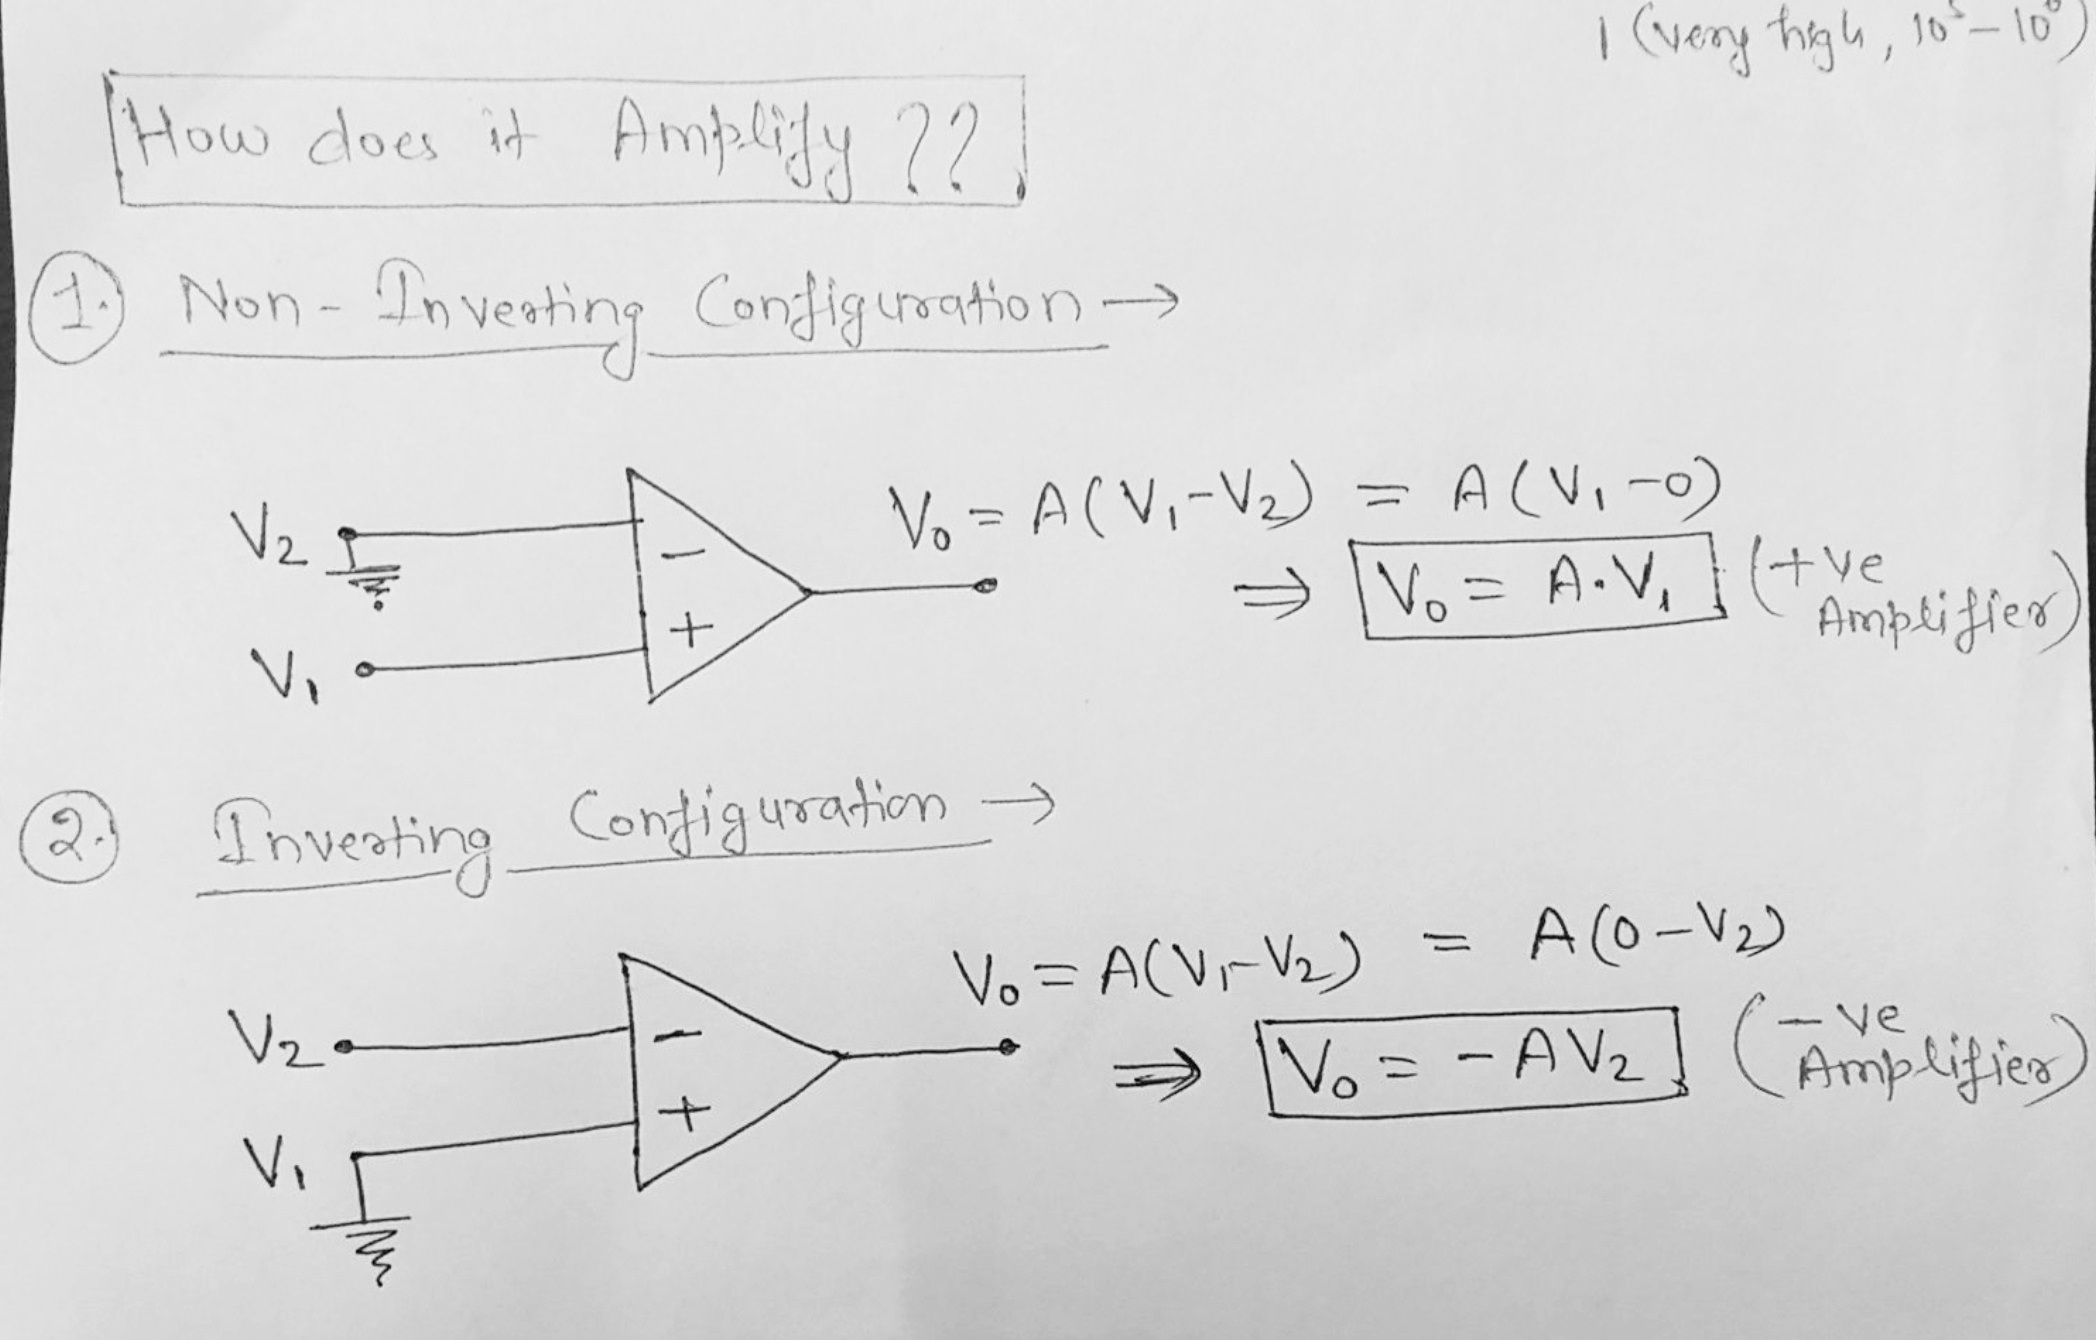 (very high, 10⁵ – 10⁶)
How does it Amplify ??
1. Non-Inverting Configuration →
V₀ = A(V₁-V₂) = A(V₁-0)
V₂
-
⇒ V₀ = A.V₁ (+ve
Amplifier)
+
V₁
2. Inverting Configuration →
V₀ = A(V₁-V₂) = A(0-V₂)
V₂
-
⇒ V₀ = -AV₂ (-ve
Amplifier)
+
V₁